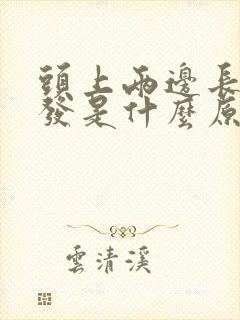 頭上兩邊長
發是什麼原
雲清溪